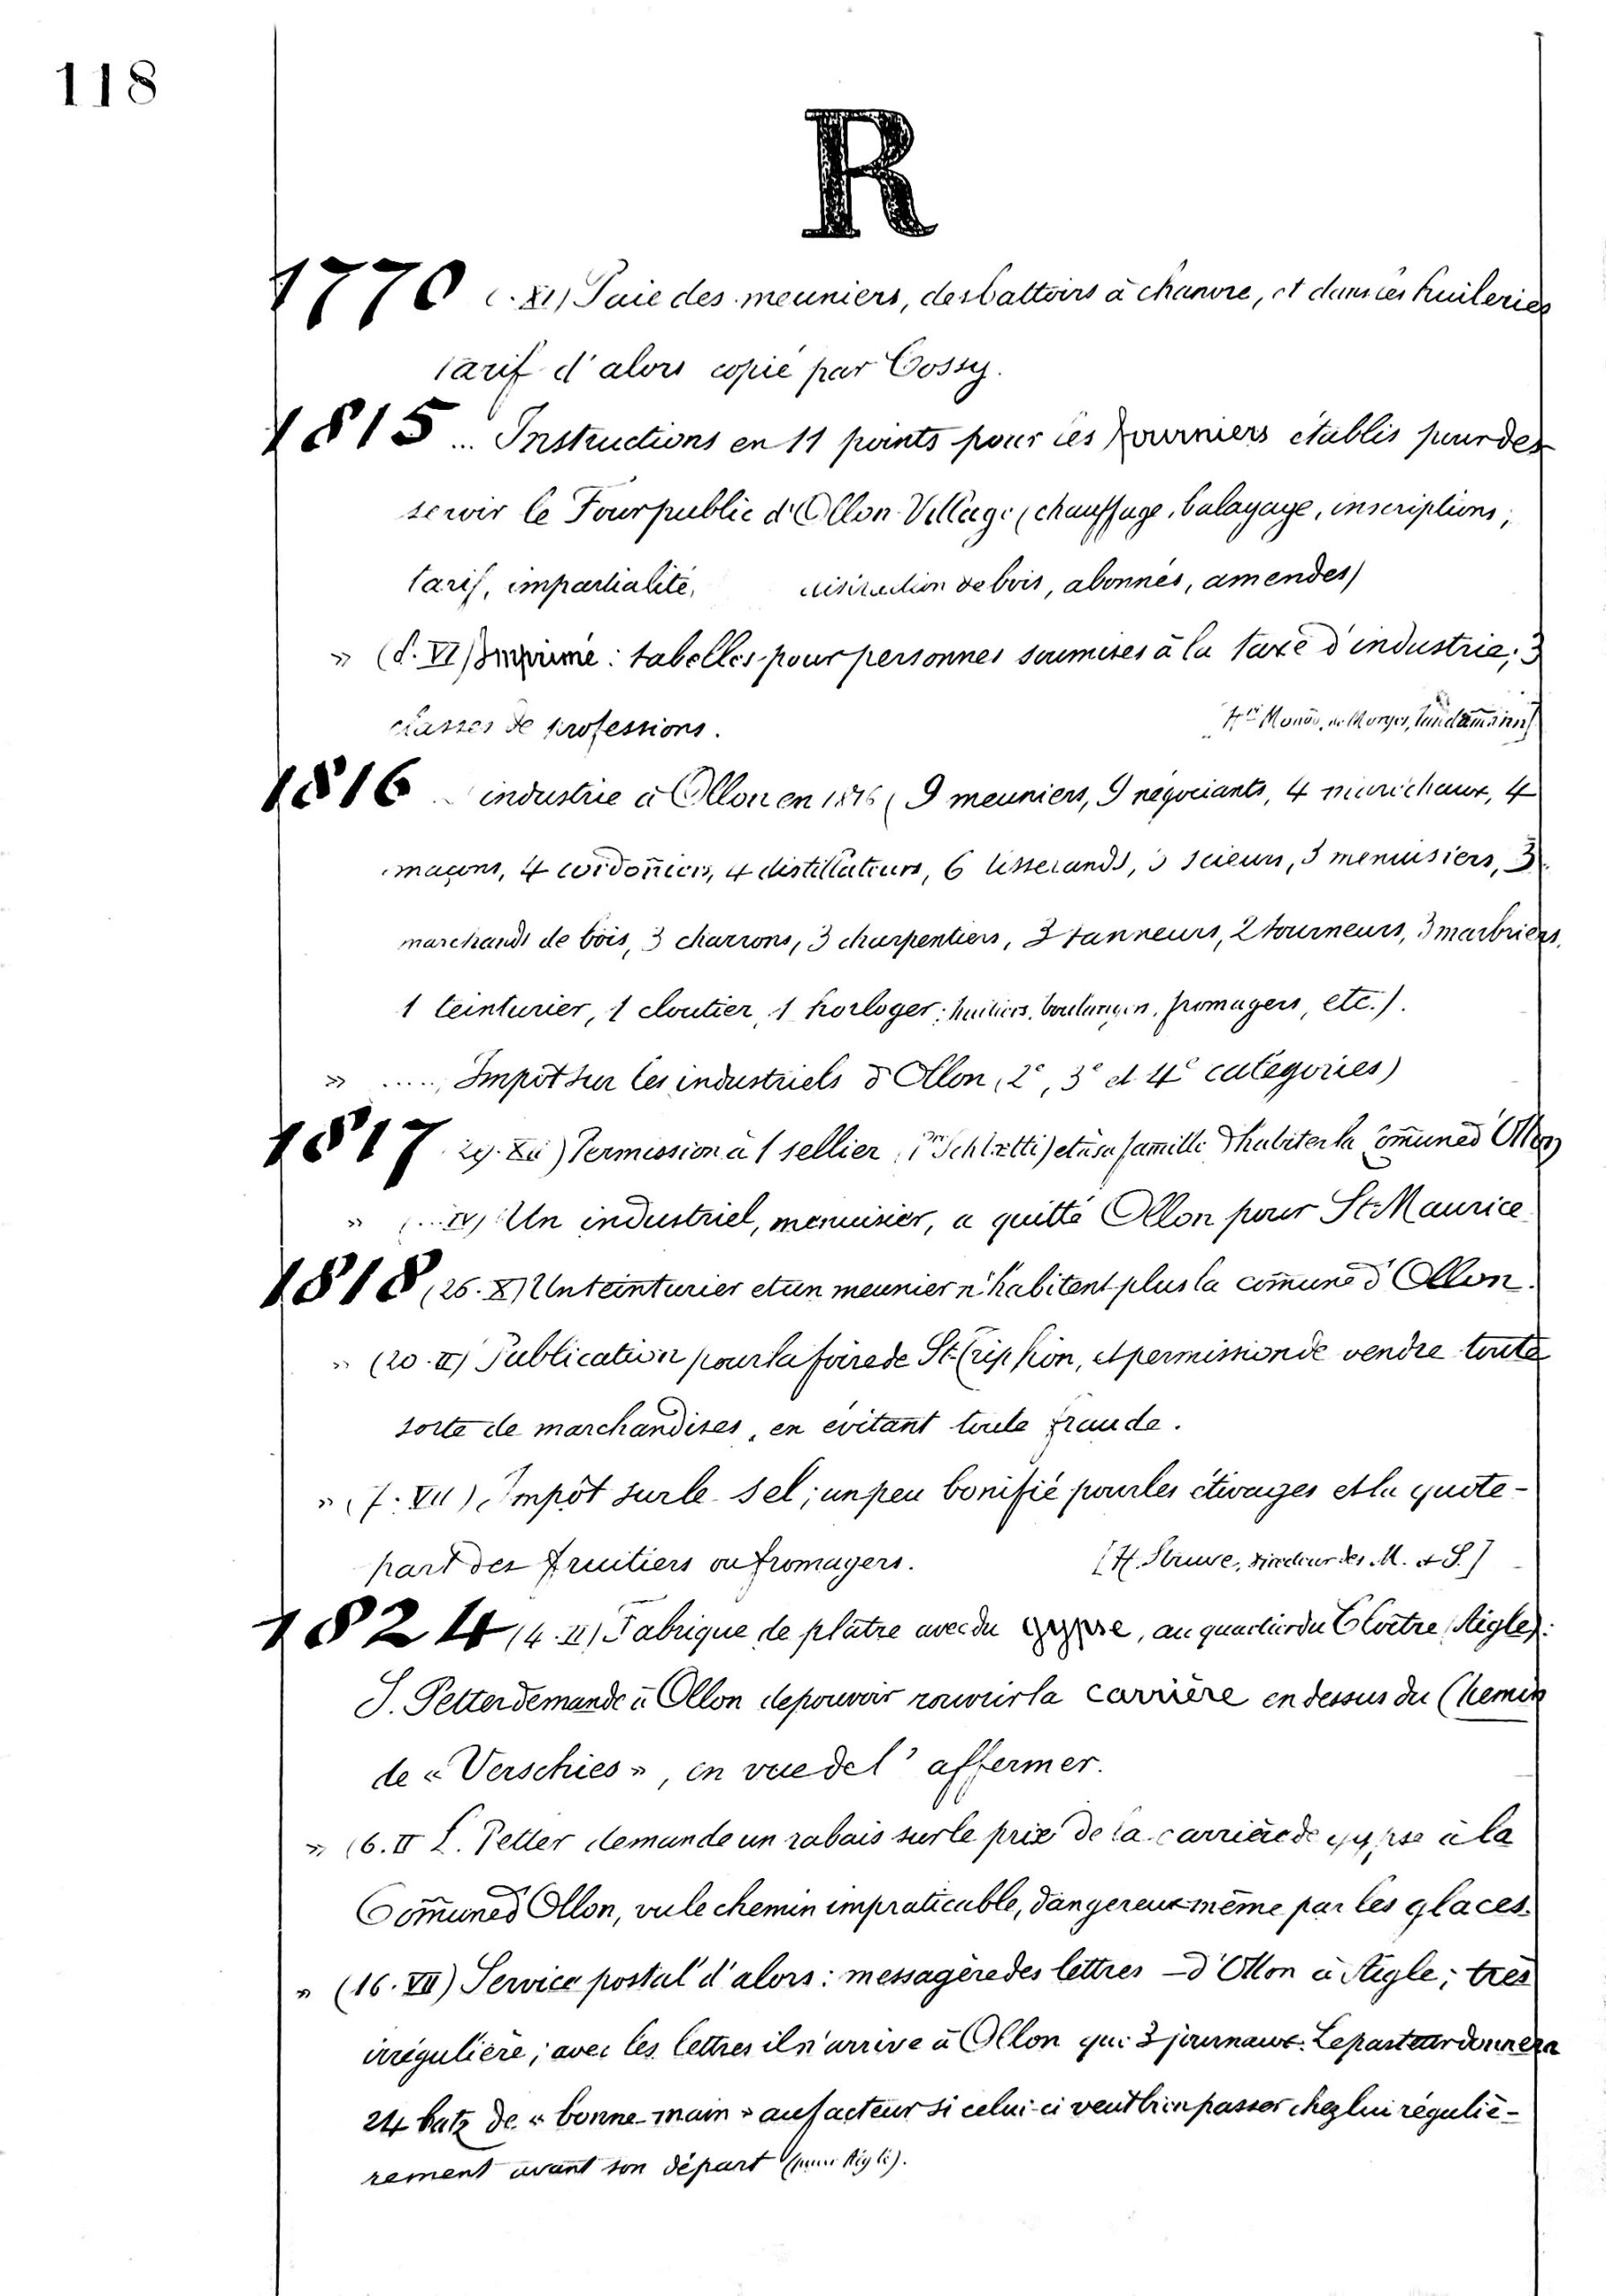 118
R
1770 (. XI) Paie des meuniers, des battoirs à chanvre, et dans les huileries
tarif d'alors copié par Cossy.
1815 ... Instructions en 11 points pour les fourniers établis pour des
servir le Four public d'Ollon-Village (chauffage, balayage, inscriptions,
tarif, impartialité, de bois, abonnés, amendes)
» (8. VI) Imprimé : tabelles pour personnes soumises à la taxe d'industrie; 3
classes de professions. [Hri Monod, de Morges, landamann]
1816 industrie à Ollon en 1816 ( 9 meuniers, 9 négociants, 4 maréchaux, 4
maçons, 4 cordoñiers, 4 distillateurs, 6 tisserands, 3 scieurs, 3 menuisiers, 3
marchands de bois, 3 charrons, 3 charpentiers, 3 tanneurs, 2 tourneurs, 3 marbriers,
1 teinturier, 1 cloutier, 1 horloger; huiliers, boulangers, fromagers, etc.).
» ..... Impôt sur les industriels d'Ollon, 2e, 3e et 4e catégories)
1817 29. XII) Permission à 1 sellier Schlætti) et à sa famille d'habiter la Com̃une d'Ollon
» (... IV) Un industriel, menuisier, a quitté Ollon pour St-Maurice
1818 (26. X) Un teinturier et un meunier n'habitent plus la com̃une d'Ollon.
» (20. II) Publication pour la foire de St-Triphon, et permission de vendre toute
sorte de marchandises, en évitant toute fraude.
» (7. VII) Impôt sur le sel; un peu bonifié pour les étivages et la quote-
part des fruitiers ou fromagers. [H. Struve, directeur des M. & S.]
1824 (4. II) Fabrique de plâtre avec du gypse, au quartier du Cloître (Aigle):
J. Petter demande à Ollon de pouvoir rouvrir la carrière en dessus du Chemin
de « Verschies », en vue de l'affermer.
» (6. II L. Petter demande un rabais sur le prix de la carrière de gypse à la
Com̃une d'Ollon, vu le chemin impraticable, dangereux même par les glaces.
» (16. VII) Service postal d'alors : messagère des lettres – d'Ollon à Aigle; très
irrégulière; avec les lettres il n'arrive à Ollon que 3 journaux. Le pasteur donnera
24 batz de « bonne-main » au facteur si celui-ci veut bien passer chez lui réguliè-
rement avant son départ (pour Aigle).